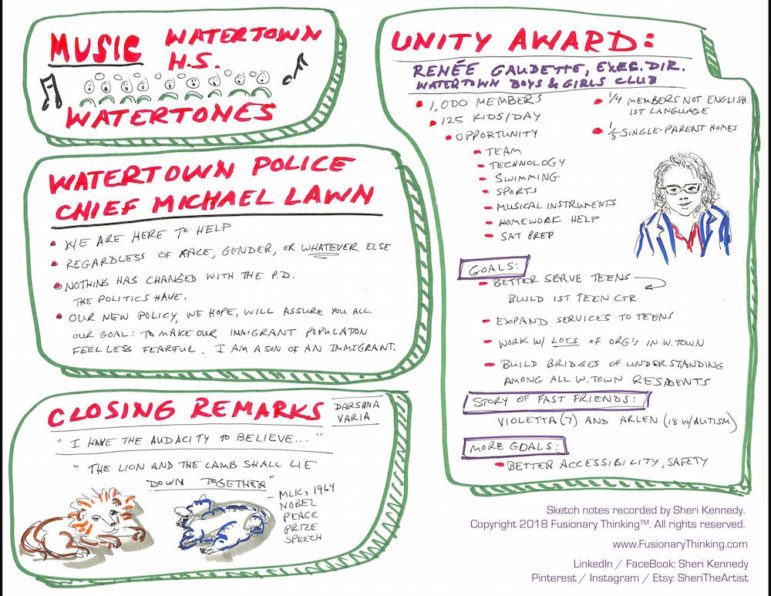 MUSIC WATERTOWN
H.S.
WATERTONES
WATERTOWN POLICE
CHIEF MICHAEL LAWN
• WE ARE HERE TO HELP
• REGARDLESS OF RACE, GENDER, OR WHATEVER ELSE
• NOTHING HAS CHANGED WITH THE P.D.
THE POLITICS HAVE.
• OUR NEW POLICY, WE HOPE, WILL ASSURE YOU ALL
OUR GOAL: TO MAKE OUR IMMIGRANT POPULATON
FEEL LESS FEARFUL. I AM A SON OF AN IMMIGRANT.
CLOSING REMARKS DARSHNA
VARIA
"I HAVE THE AUDACITY TO BELIEVE..."
"THE LION AND THE LAMB SHALL LIE
DOWN TOGETHER"
— MLK, 1964
NOBEL
PEACE
PRIZE
SPEECH
UNITY AWARD:
RENÉE GAUDETTE, EXEC. DIR.
WATERTOWN BOYS & GIRLS CLUB
• 1,000 MEMBERS
• 125 KIDS/DAY
• OPPORTUNITY
- TEAM
- TECHNOLOGY
- SWIMMING
- SPORTS
- MUSICAL INSTRUMENTS
- HOMEWORK HELP
- SAT PREP
• 1/4 MEMBERS NOT ENGLISH
1ST LANGUAGE
• 1/5 SINGLE-PARENT HOMES
GOALS:
- BETTER SERVE TEENS
BUILD 1ST TEEN CTR
- EXPAND SERVICES TO TEENS
- WORK W/ LOTS OF ORG'S IN W.TOWN
- BUILD BRIDGES OF UNDERSTANDING
AMONG ALL W.TOWN RESIDENTS
STORY OF FAST FRIENDS:
VIOLETTA (7) AND ARLEN (18 W/AUTISM)
MORE GOALS:
• BETTER ACCESSIBILITY, SAFETY
Sketch notes recorded by Sheri Kennedy.
Copyright 2018 Fusionary Thinking™. All rights reserved.
www.FusionaryThinking.com
LinkedIn / FaceBook: Sheri Kennedy
Pinterest / Instagram / Etsy: SheriTheArtist